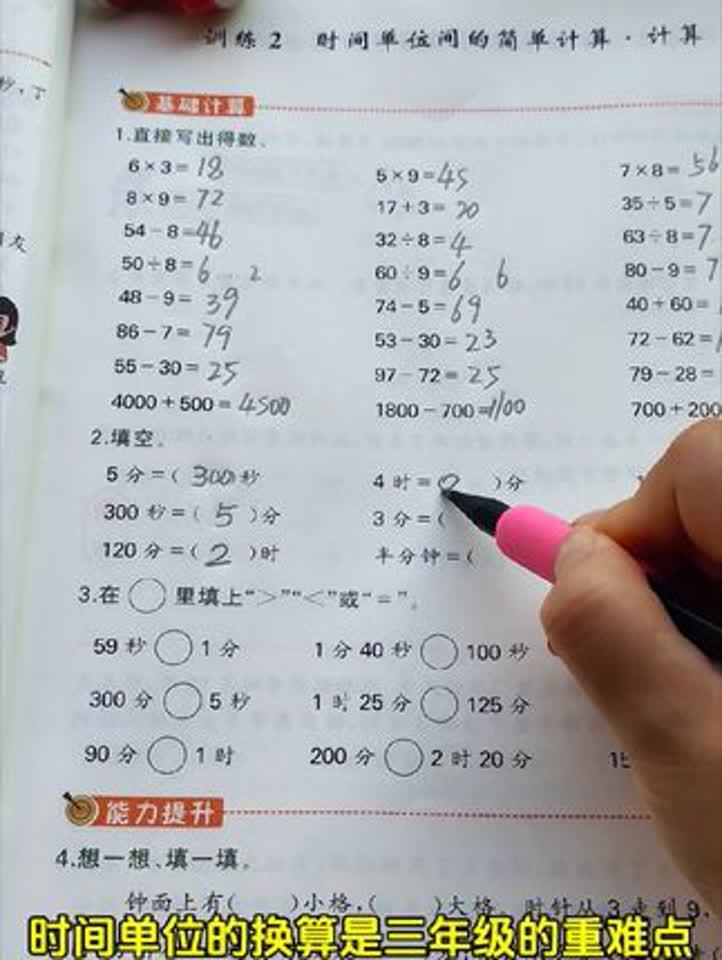 训练2 时间单位间的简单计算·计算
基础计算
1.直接写出得数。
6×3=18 5×9=45 7×8=56
8×9=72 17+3=20 35÷5=7
54-8=46 32÷8=4 63÷8=7
50÷8=6…2 60÷9=6 6 80-9=7
48-9=39 74-5=69 40+60=
86-7=79 53-30=23 72-62=
55-30=25 97-72=25 79-28=
4000+500=4500 1800-700=1100 700+200
2.填空。
5分=(300)秒 4时= )分
300秒=(5)分 3分=(
120分=(2)时 半分钟=(
3.在○里填上“>”“<”或“=”。
59秒○1分 1分40秒○100秒
300分○5秒 1时25分○125分
90分○1时 200分○2时20分 15
能力提升
4.想一想、填一填。
钟面上有( )小格,( )大格。时针从3走到9,
时间单位的换算是三年级的重难点